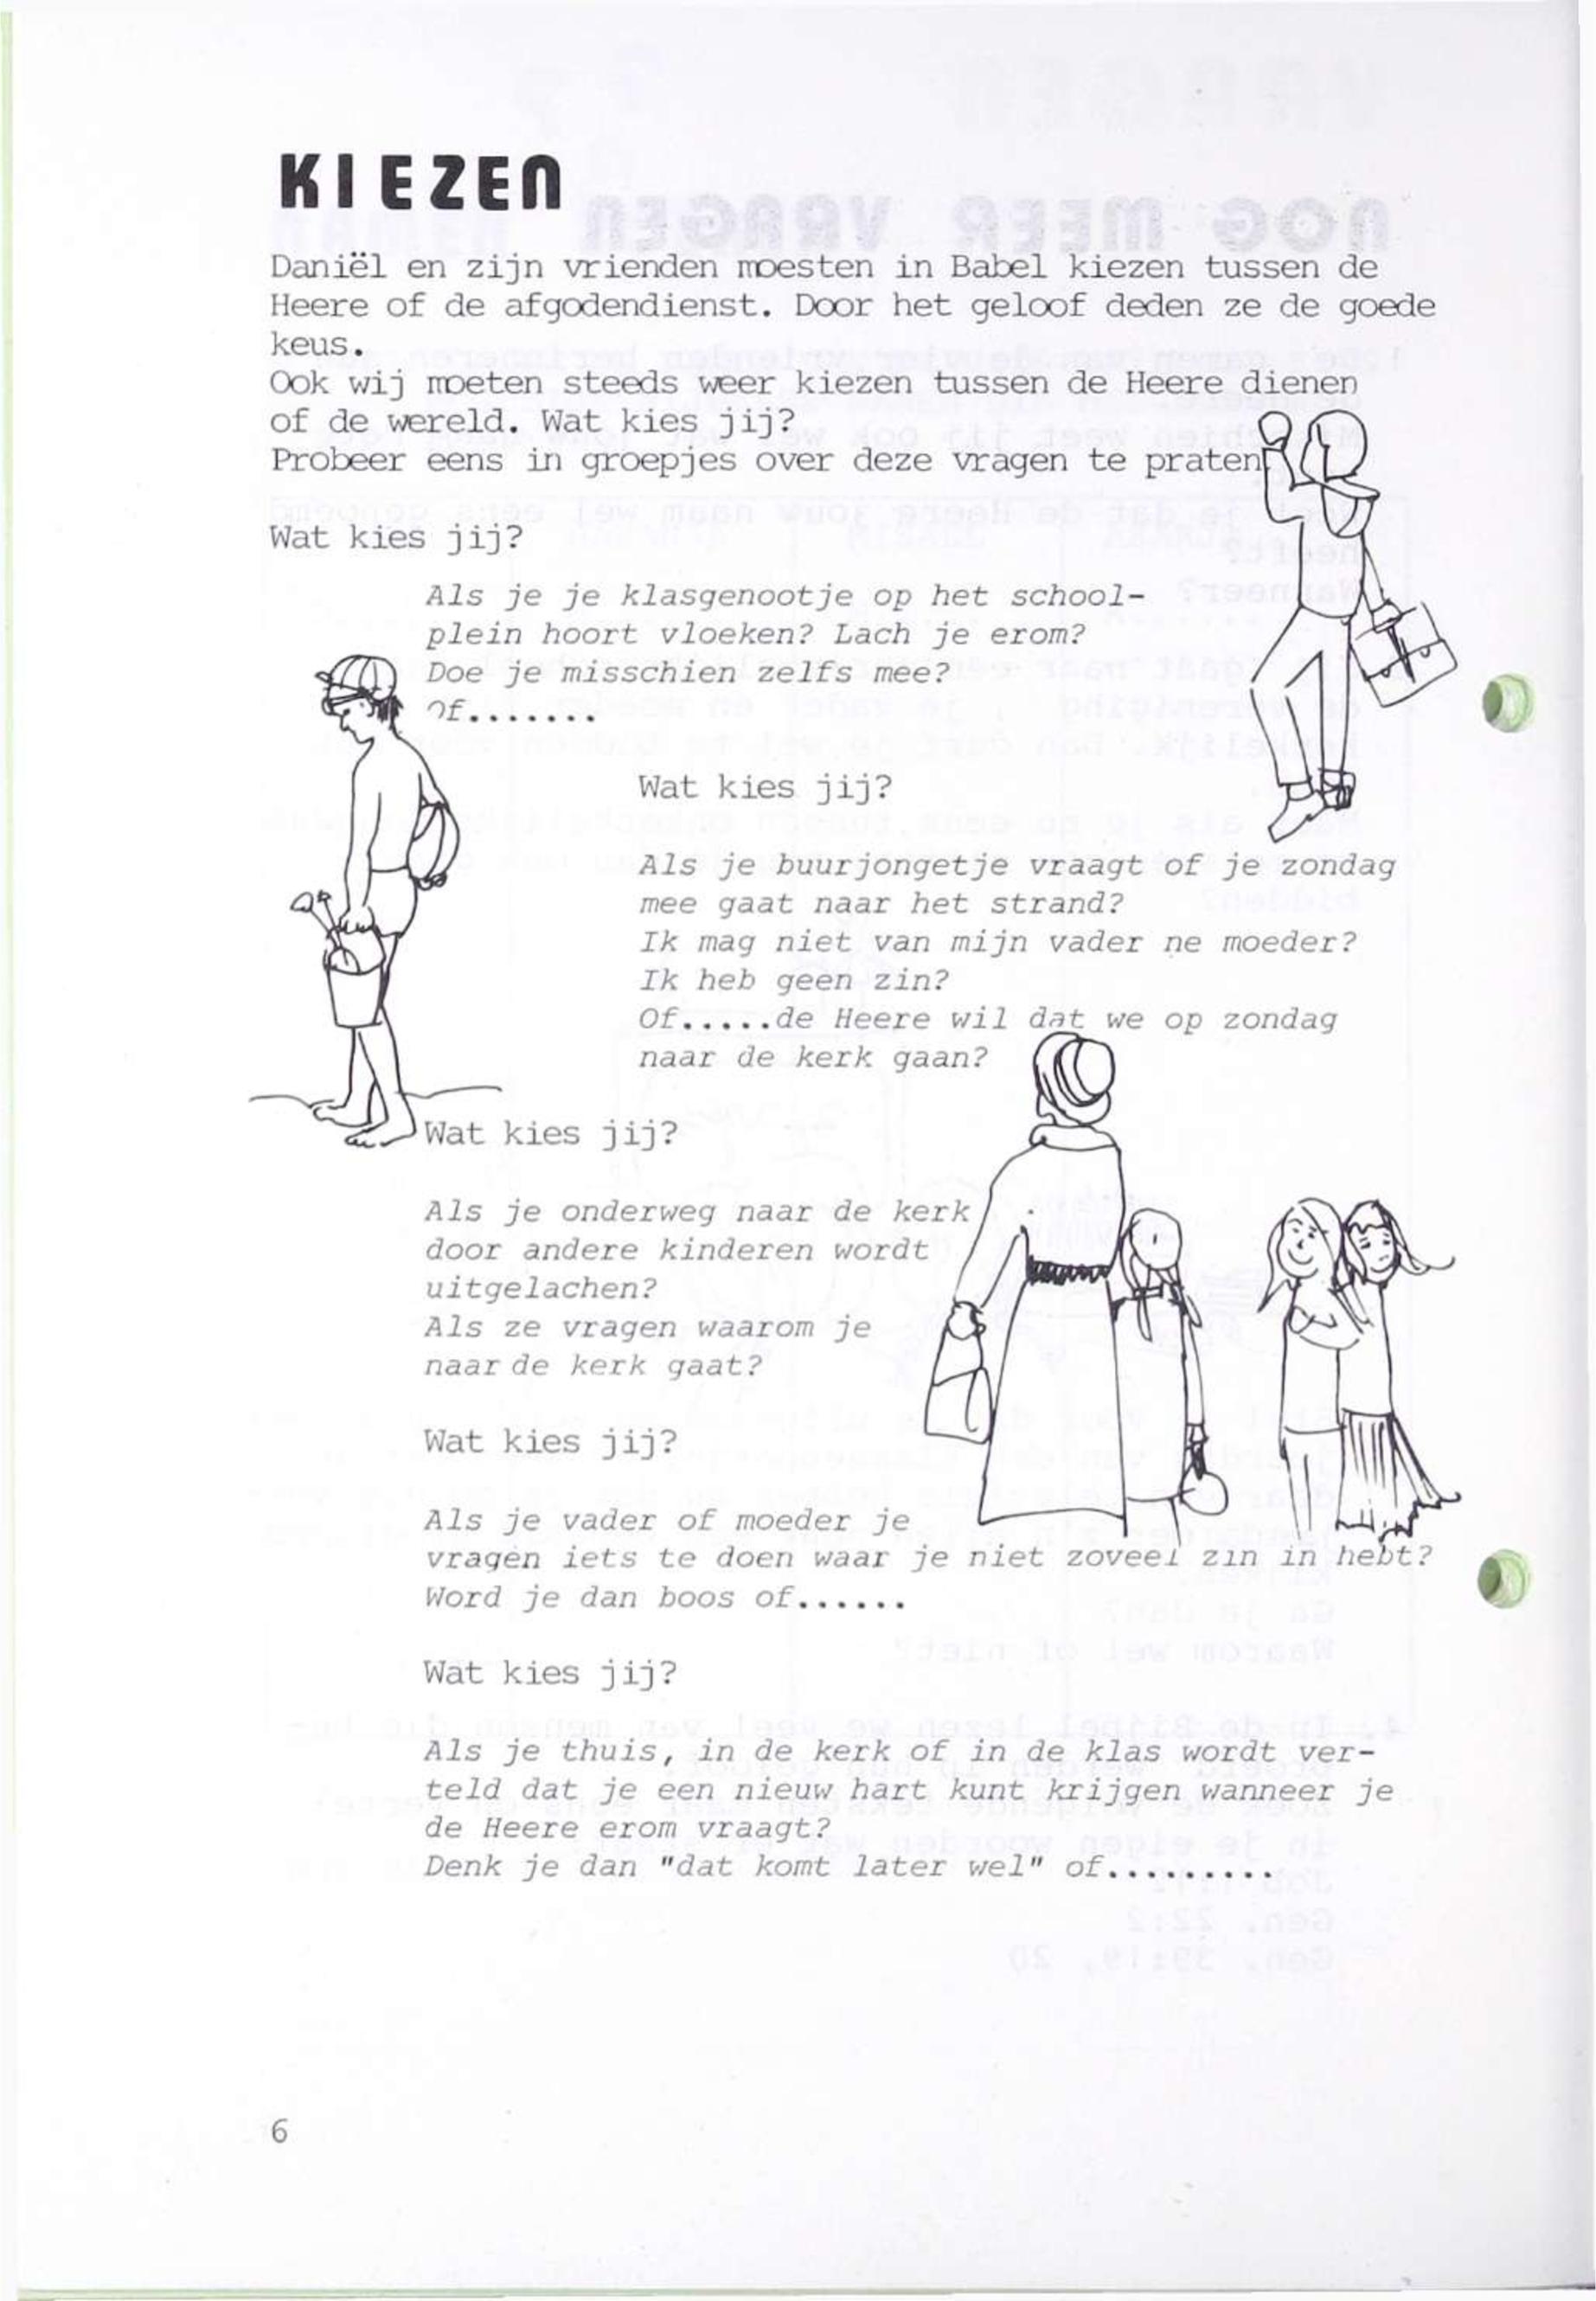 KIEZEN
Daniël en zijn vrienden moesten in Babel kiezen tussen de
Heere of de afgodendienst. Door het geloof deden ze de goede
keus.
Ook wij moeten steeds weer kiezen tussen de Heere dienen
of de wereld. Wat kies jij?
Probeer eens in groepjes over deze vragen te praten
Wat kies jij?
Als je je klasgenootje op het school-
plein hoort vloeken? Lach je erom?
Doe je misschien zelfs mee?
Of.......
Wat kies jij?
Als je buurjongetje vraagt of je zondag
mee gaat naar het strand?
Ik mag niet van mijn vader ne moeder?
Ik heb geen zin?
Of.....de Heere wil dat we op zondag
naar de kerk gaan?
Wat kies jij?
Als je onderweg naar de kerk
door andere kinderen wordt
uitgelachen?
Als ze vragen waarom je
naar de kerk gaat?
Wat kies jij?
Als je vader of moeder je
vragen iets te doen waar je niet zoveel zin in hebt?
Word je dan boos of......
Wat kies jij?
Als je thuis, in de kerk of in de klas wordt ver-
teld dat je een nieuw hart kunt krijgen wanneer je
de Heere erom vraagt?
Denk je dan "dat komt later wel" of.........
6